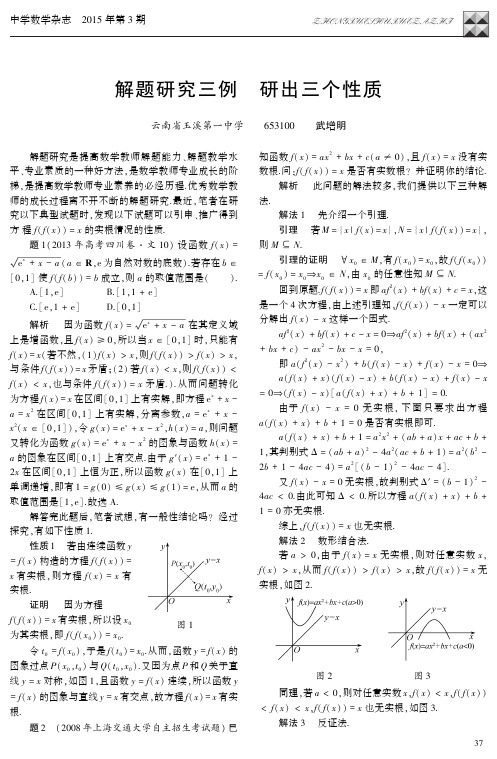 中学数学杂志 2015年第3期
ZHONGXUESHUXUEZAZHI
解题研究三例 研出三个性质
云南省玉溪第一中学 653100 武增明
解题研究是提高数学教师解题能力、解题教学水
平、专业素质的一种好方法,是数学教师专业成长的阶
梯,是提高数学教师专业素养的必经历程.优秀数学教
师的成长过程离不开不断的解题研究.最近,笔者在研
究以下典型试题时,发现以下试题可以引申、推广得到
方程f(f(x))=x的实根情况的性质.
题1(2013年高考四川卷·文10) 设函数f(x)=
√(eˣ+x-a)(a∈R,e为自然对数的底数).若存在b∈
[0,1]使f(f(b))=b成立,则a的取值范围是( ).
A.[1,e] B.[1,1+e]
C.[e,1+e] D.[0,1]
解析 因为函数f(x)=√(eˣ+x-a)在其定义域
上是增函数,且f(x)≥0,所以当x∈[0,1]时,只能有
f(x)=x(若不然,(1)f(x)>x,则f(f(x))>f(x)>x,
与条件f(f(x))=x矛盾;(2)若f(x)<x,则f(f(x))<
f(x)<x,也与条件f(f(x))=x矛盾.).从而问题转化
为方程f(x)=x在区间[0,1]上有实解,即方程eˣ+x-
a=x²在区间[0,1]上有实解,分离参数,a=eˣ+x-
x²(x∈[0,1]),令g(x)=eˣ+x-x²,h(x)=a,则问题
又转化为函数g(x)=eˣ+x-x²的图象与函数h(x)=
a的图象在区间[0,1]上有交点.由于g′(x)=eˣ+1-
2x在区间[0,1]上恒为正,所以函数g(x)在[0,1]上
单调递增,即有1=g(0)≤g(x)≤g(1)=e,从而a的
取值范围是[1,e].故选A.
解答完此题后,笔者试想,有一般性结论吗?经过
探究,有如下性质1.
性质1 若由连续函数y
=f(x)构造的方程f(f(x))=
x有实根,则方程f(x)=x有
实根.
证明 因为方程
f(f(x))=x有实根,所以设x₀
为其实根,即f(f(x₀))=x₀.
y
P(x₀,t₀)
y=x
Q(t₀,x₀)
O
x
图1
令t₀=f(x₀),于是f(t₀)=x₀.从而,函数y=f(x)的
图象过点P(x₀,t₀)与Q(t₀,x₀).又因为点P和Q关于直
线y=x对称,如图1,且函数y=f(x)连续,所以函数y
=f(x)的图象与直线y=x有交点,故方程f(x)=x有实
根.
题2 (2008年上海交通大学自主招生考试题)已
知函数f(x)=ax²+bx+c(a≠0),且f(x)=x没有实
数根.问:f(f(x))=x是否有实数根?并证明你的结论.
解析 此问题的解法较多,我们提供以下三种解
法.
解法1 先介绍一个引理.
引理 若M={x|f(x)=x},N={x|f(f(x))=x},
则M⊆N.
引理的证明 ∀x₀∈M,有f(x₀)=x₀,故f(f(x₀))
=f(x₀)=x₀⇒x₀∈N,由x₀的任意性知M⊆N.
回到原题.f(f(x))=x即af²(x)+bf(x)+c=x,这
是一个4次方程,由上述引理知,f(f(x))-x一定可以
分解出f(x)-x这样一个因式.
af²(x)+bf(x)+c-x=0⇒af²(x)+bf(x)+(ax²
+bx+c)-ax²-bx-x=0,
即a(f²(x)-x²)+b(f(x)-x)+f(x)-x=0⇒
a(f(x)+x)(f(x)-x)+b(f(x)-x)+f(x)-x
=0⇒(f(x)-x)[a(f(x)+x)+b+1]=0.
由于f(x)-x=0无实根,下面只要求出方程
a(f(x)+x)+b+1=0是否有实根即可.
a(f(x)+x)+b+1=a²x²+(ab+a)x+ac+b+
1,其判别式Δ=(ab+a)²-4a²(ac+b+1)=a²(b²-
2b+1-4ac-4)=a²[(b-1)²-4ac-4].
又f(x)-x=0无实根,故判别式Δ′=(b-1)²-
4ac<0.由此可知Δ<0.所以方程a(f(x)+x)+b+
1=0亦无实根.
综上,f(f(x))=x也无实根.
解法2 数形结合法.
若a>0,由于f(x)=x无实根,则对任意实数x,
f(x)>x,从而f(f(x))>f(x)>x,故f(f(x))=x无
实根,如图2.
y f(x)=ax²+bx+c(a>0)
y=x
O
x
图2
y
y=x
O
x
f(x)=ax²+bx+c(a<0)
图3
同理,若a<0,则对任意实数x,f(x)<x,f(f(x))
<f(x)<x,f(f(x))=x也无实根,如图3.
解法3 反证法.
37